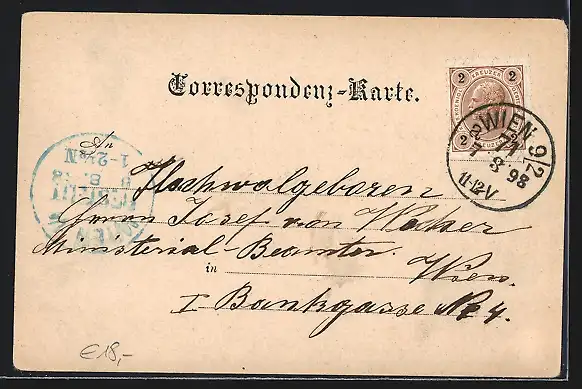 Correspondenz-Karte.
2 KREUZER 2
2 KREUZER 2
WIEN 9/2
72
7 8 98
11-12V
An
Hochwolgeboren
Herrn Josef von
Ministerial-Beamter.
in Wien.
I. Bankgasse No 4.
€18,-